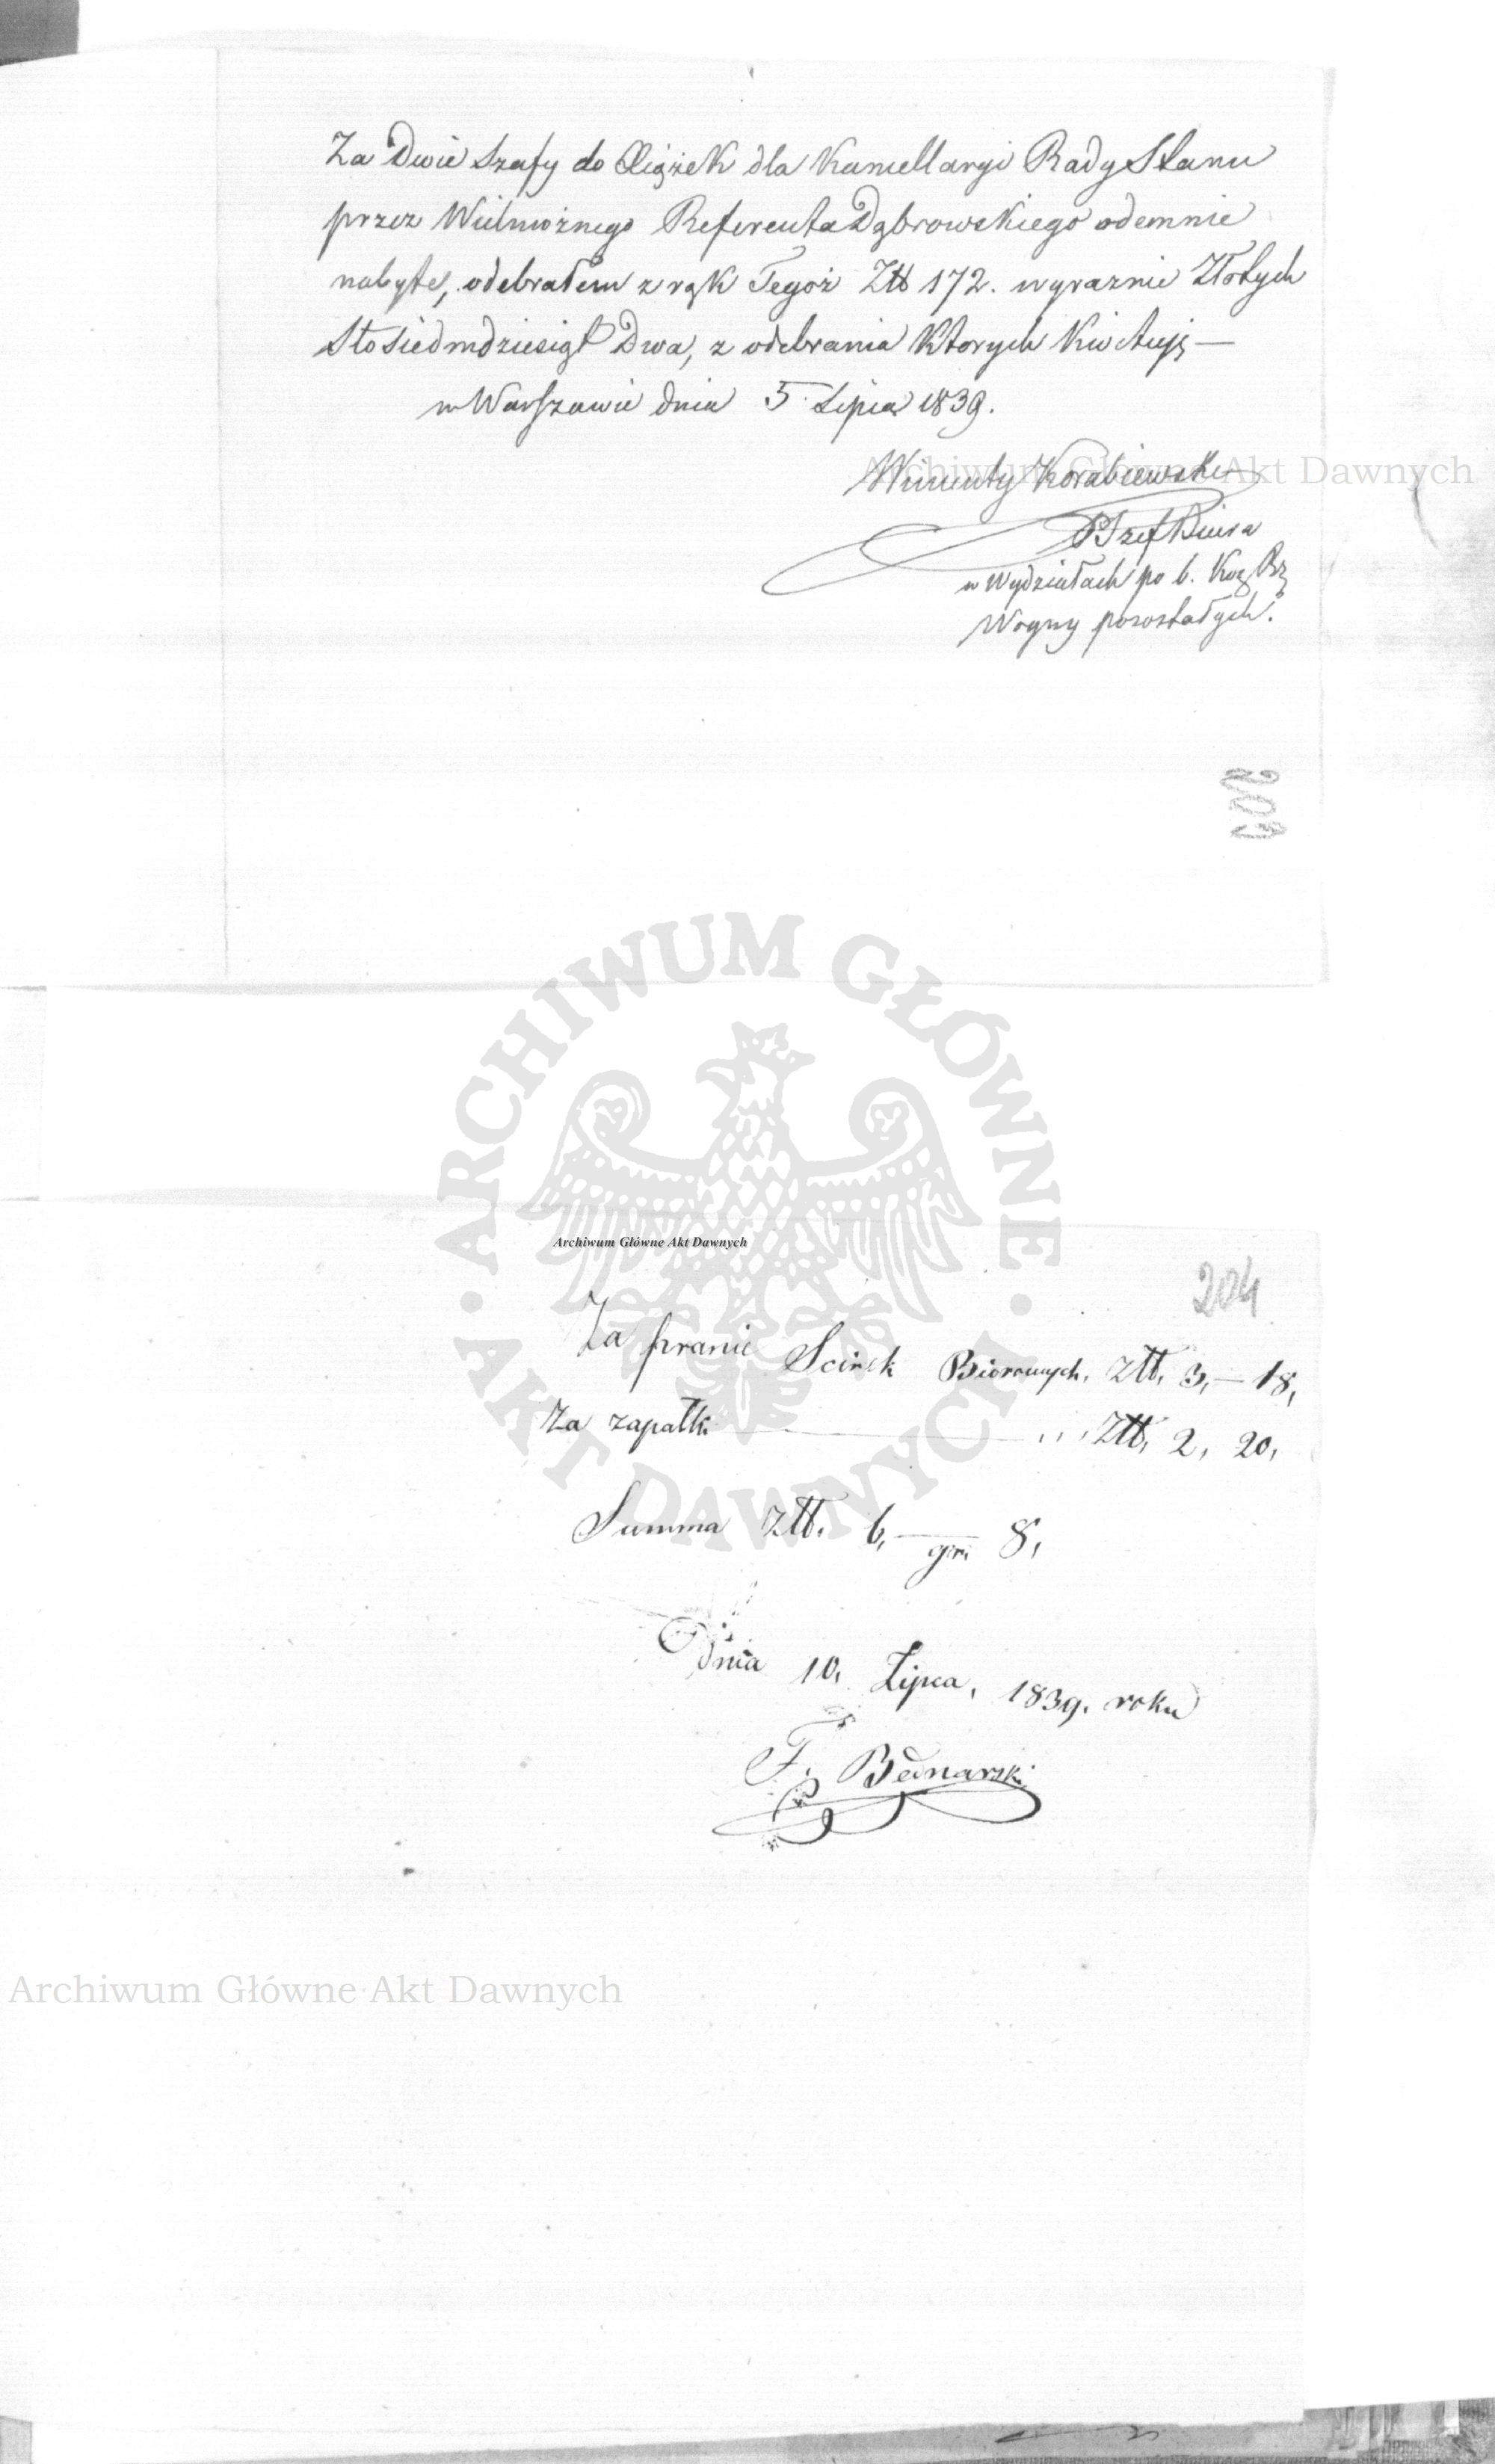 Za Dwie Szafy do Xiążek dla Kancellaryi Rady Stanu
przez Wielmożnego Referenta Dąbrowskiego odemnie
nabyte, odebrałem z rąk Tegoż Złł 172. wyraznie Złotych
Sto Siedmdziesiąt Dwa, z odebrania Ktorych Kwituję —
w Warszawie dnia 5 Lipca 1839.
Wincenty Korabiewski
Szef Biura
w Wydziałach po b. Kom Rz
Woyny pozostałych.
203
ARCHIWUM GŁÓWNE AKT DAWNYCH
Archiwum Główne Akt Dawnych
Archiwum Główne Akt Dawnych
204
Za pranie Scirek Biorowych. Złł. 3, — 18,
Za zapałki Złł. 2, 20,
Summa Złł. 6, — gr. 8,
Dnia 10, Lipca, 1839. roku
F. Bednarski
Archiwum Główne Akt Dawnych